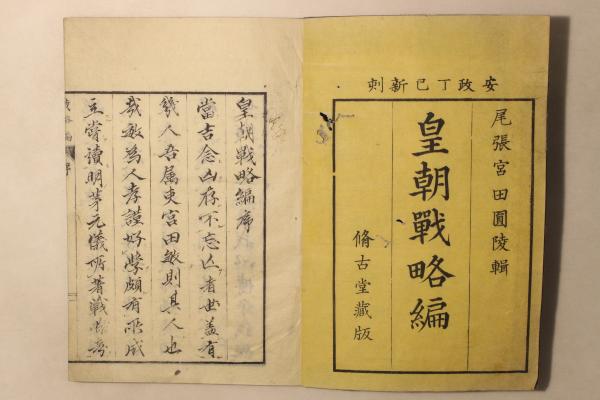 安政丁巳新刻
尾張宮田圓陵輯
皇朝戰略編
脩古堂藏版
皇朝戰略編序
當吉念凶存不忘亡者世蓋有
幾人吾属吏宮田敏則其人也
哉敏為人孝謹好學頗有所成
立嘗讀明茅元儀所著戰